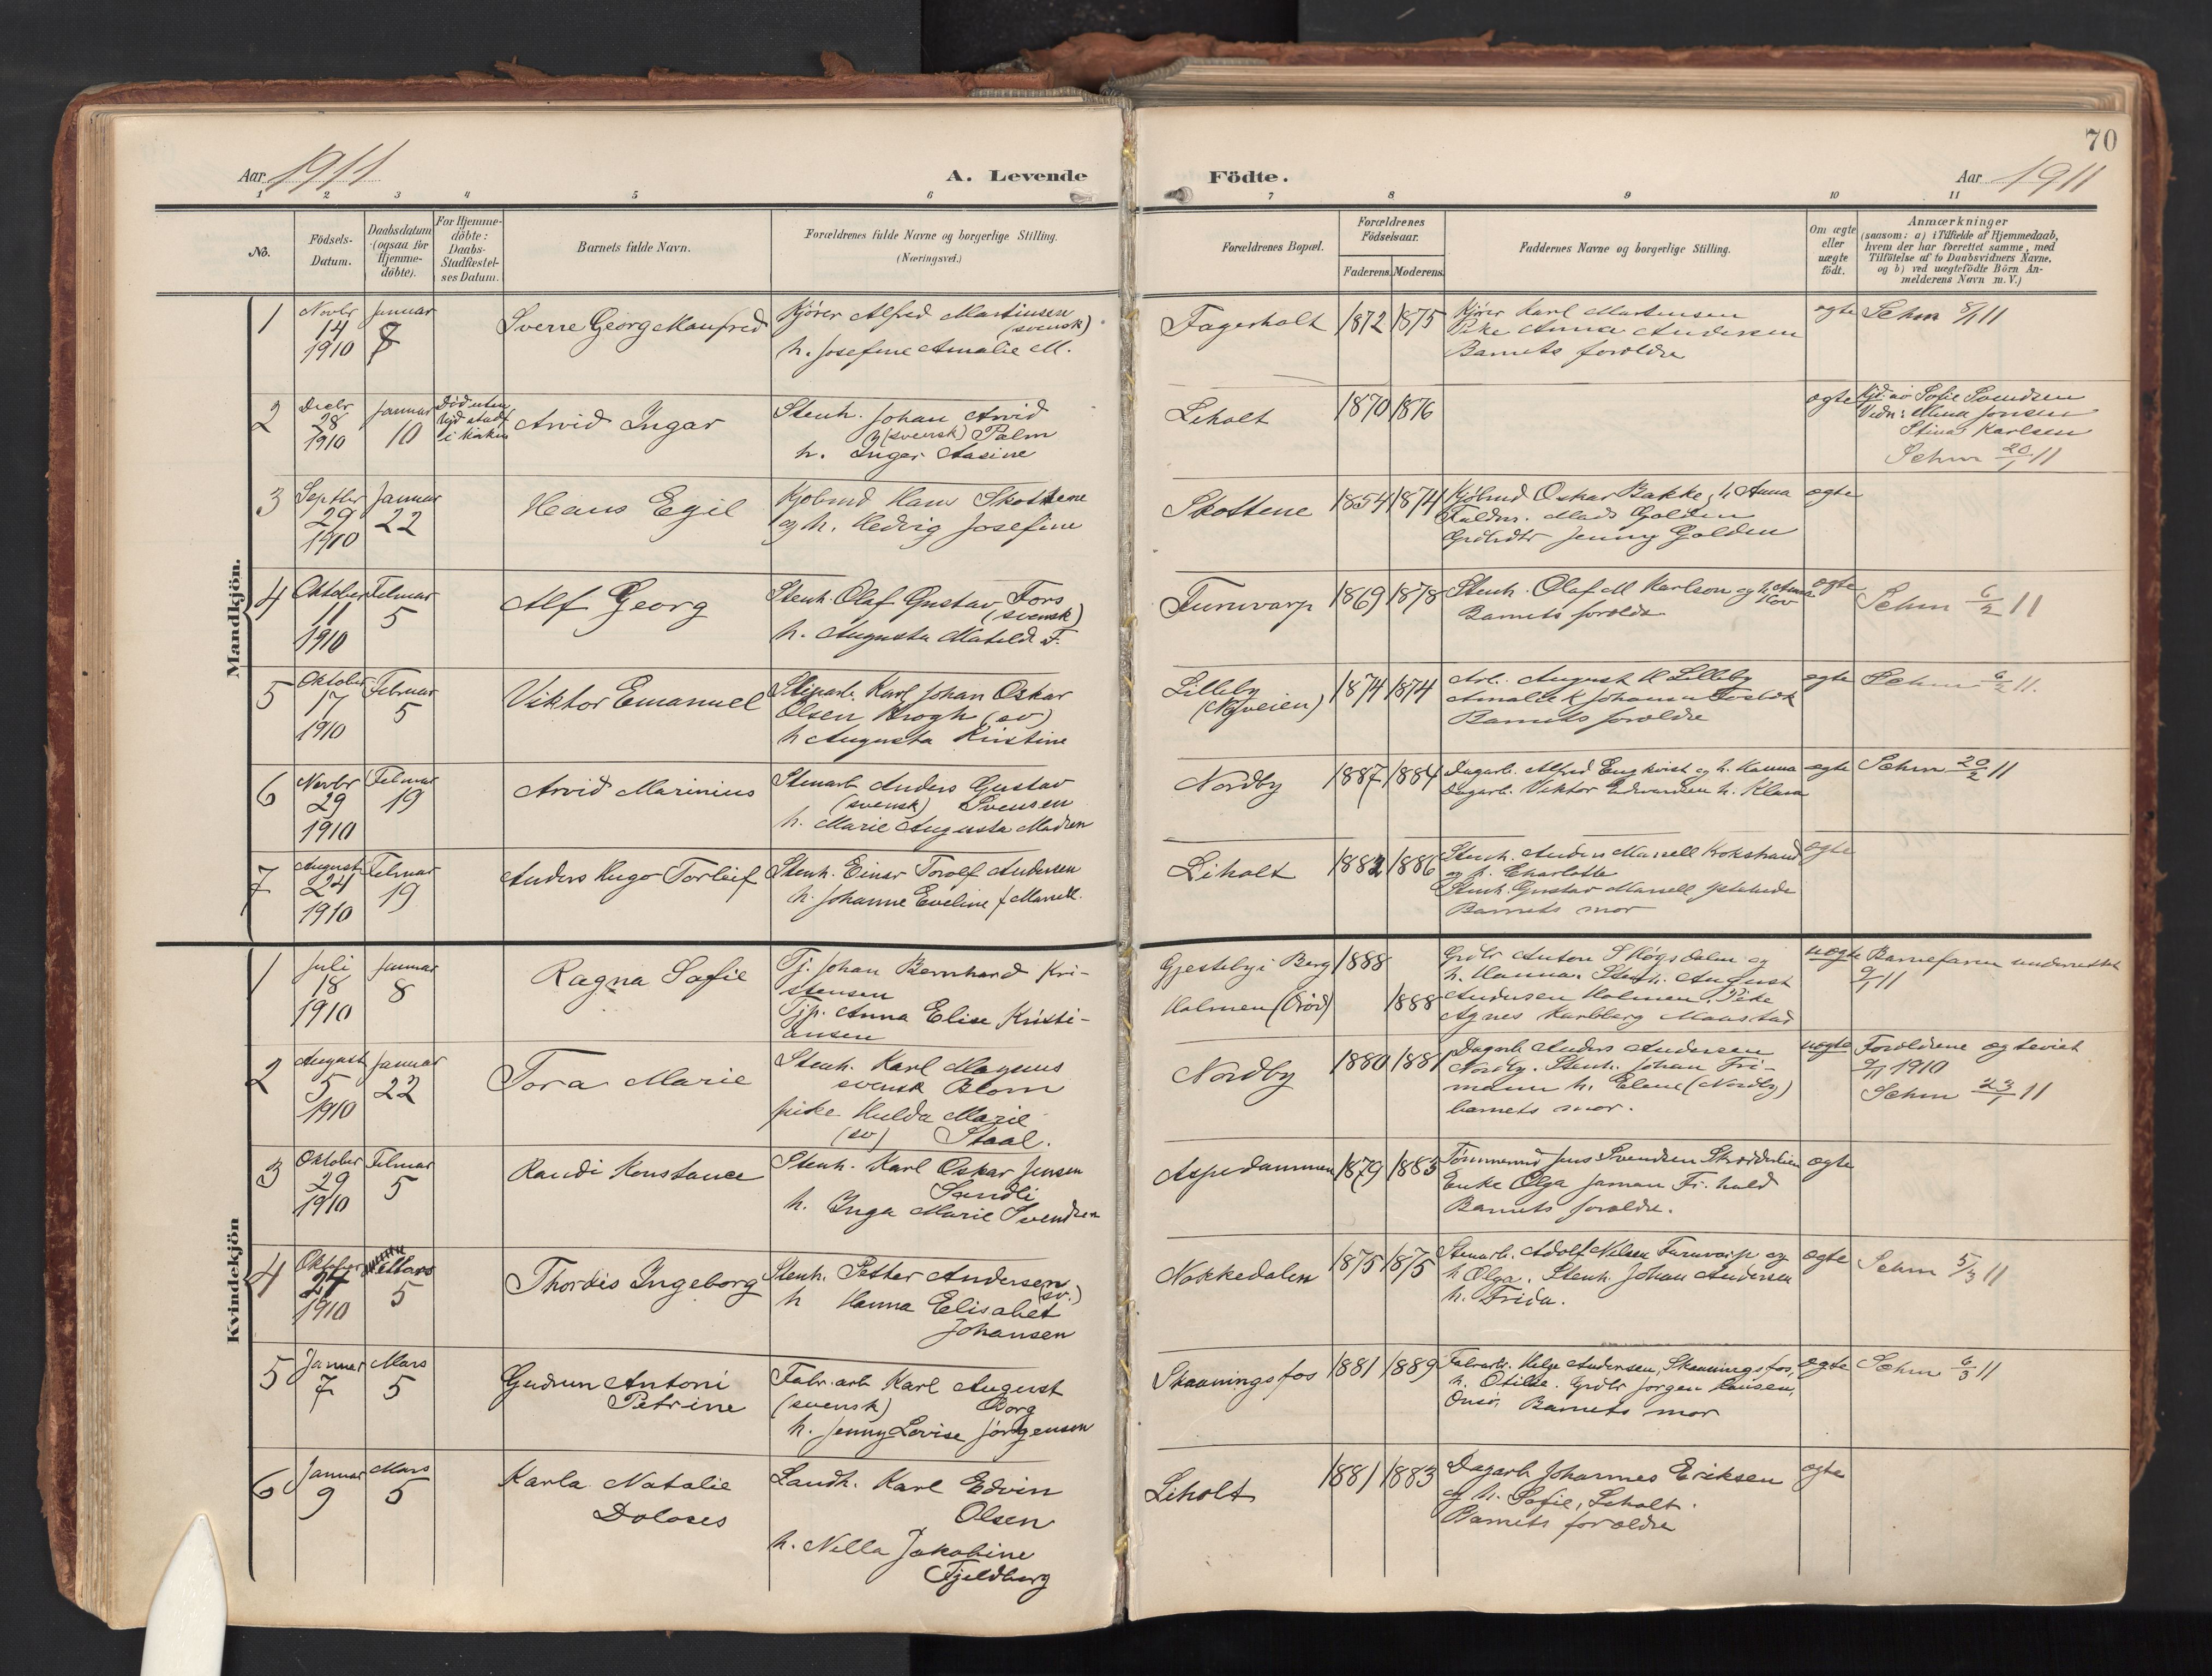 70
Aar 1911
A. Levende
Födte.
Aar 1911
1 2 3 4 5 6 7 8 9 10 11
No.
Födsels-
Datum.
Daabsdatum
(ogsaa for
Hjemme-
döbte).
For Hjemme-
döbte:
Daabs-
Stadfæstel-
ses Datum.
Barnets fulde Navn.
Forældrenes fulde Navne og borgerlige Stilling.
(Næringsvei.)
Forældrenes Bopæl.
Forældrenes
Födselsaar.
Faderens. Moderens.
Faddernes Navne og borgerlige Stilling.
Om ægte
eller
uægte
födt.
Anmærkninger
(saasom: a) i Tilfælde af Hjemmedaab,
hvem der har forrettet samme, med
Tilföielse af to Daabsvidners Navne,
og b) ved uægtefödte Börn An-
melderens Navn m. V.)
Mandkjön.
1
Novbr
14
1910
Januar
8
Sverre Georg Manfred
Kjører Alfred Martinsen
(svensk)
h. Josefine Amalie M.
Fagerholt
1872 1875
Kjører Karl Martensen
Pike Anna Andersen
Barnets forældre
ægte
Sehm 8/1 11
2
Decbr
28
1910
Januar
10
Død uten
i kirken
Arvid Ingar
Stenh. Johan Arvid
(svensk) Palm
h. Inger Aasine
Liholt
1870 1876
ægte
Hjd. av Sofie Svendsen
Vidn: Alma Jonsen
Stina Karlsen
Sehm 20/1 11
3
Septbr
29
1910
Januar
22
Hans Egil
Kjøbmd Hans Skottene
og h. Hedvig Josefine
Skottene
1854 1874
Kjøbmd Oskar Bakke, h. Anna
Fuldm. Mads Golden
Grdbdtr Jenny Golden
ægte
4
Oktober
11
1910
Februar
5
Alf Georg
Stenh. Olaf Gustav Fors
(svensk)
h. Augusta Matilde F.
Furuvarp
1869 1878
Stenh. Olaf M Karlson og h. Anna
Barnets forældre
ægte
Sehm 6/2 11
5
Oktober
17
1910
Februar
5
Viktor Emanuel
Sliparb. Karl Johan Oskar
Olsen Krogh (sv)
h Augusta Kristine
Lilleby
(Nyveien)
1874 1874
Arb. August H Lilleby
Amalie K Johansen
Barnets forældre
ægte
Sehm 6/2 11.
6
Novbr
29
1910
Februar
19
Arvid Marinius
Stenarb Anders Gustav
(svensk) Svensen
h. Marie Augusta Madsen
Nordby
1887 1884
Dagarb. Alfred Engkvist og h. Hanna
Dagarb. Viktor Edvardsen h. Klara
ægte
Sehm 20/2 11
7
August
24
1910
Februar
19
Anders Hugo Torleif
Stenh. Einar Torolf Andersen
h. Johanne Eveline f Marell.
Liholt
1882 1886
Stenh. Anders Marell Krokstrand
og h. Charlotte
Stenh. Gustav Marell
Barnets mor
ægte
Kvindekjön
1
Juli
18
1910
Januar
8
Ragna Sofie
Tj. Johan Bernhard Kri-
stensen
Tjp. Anna Elise Kristi-
ansen
Gjesteby i Berg
Holmen (Prød)
1888
1888
Grdbr Anton S Høgsdalen og
h. Hanna. Stenh. August
Andersen Holmen. Pike
Agnes Karlberg
uægte
Barnefaren underrettet
9/1 11
2
August
5
1910
Januar
22
Tora Marie
Stenh. Karl Magnus
svensk Blom
pike Hulda Marie
(sv) Staal.
Nordby
1880 1881
Dagarb Anders Andersen
Nordby. Stenh. Johan Fri-
mann h. Elene (Nordby)
barnets mor.
uægte
Forældrene ægteviet
9/11 1910
Sehm 23/1 11
3
Oktober
29
1910
Februar
5
Randi Konstance
Stenh. Karl Oskar Jensen
Sandli
h. Inga Marie Svendsen
Aspedammen
1879 1885
Tømmermd Jens Svendsen
Enke Olga
Barnets forældre.
ægte
4
Oktober
24
1910
Mars
5
Thordis Ingeborg
Stenh. Petter Andersen
(sv.)
h Hanna Elisabet
Johansen
Nokkedalen
1875 1875
Stenarb. Adolf Nilsen Furuvarp og
h Olga. Stenh. Johan Andersen
h. Frida.
ægte
Sehm 5/3 11
5
Januar
7
Mars
5
Gudrun Antoni
Petrine
Fabr.arb Karl August
(svensk) Borg
h. Jenny Lovise Jørgensen
Skaaningsfos
1881 1889
Fabrarb. Helge Andersen, Skaaningsfos,
h. Otilde. Grdbr Jørgen Hansen,
Onsø, Barnets mor
ægte
Sehm 6/3 11
6
Januar
9
Mars
5
Karla Natalie
Dolores
Landh. Karl Edvin
Olsen
h. Nella Jakobine
Fjeldberg
Liholt
1881 1883
Dagarb Johannes Eriksen
og h. Sofie, Liholt.
Barnets forældre
ægte